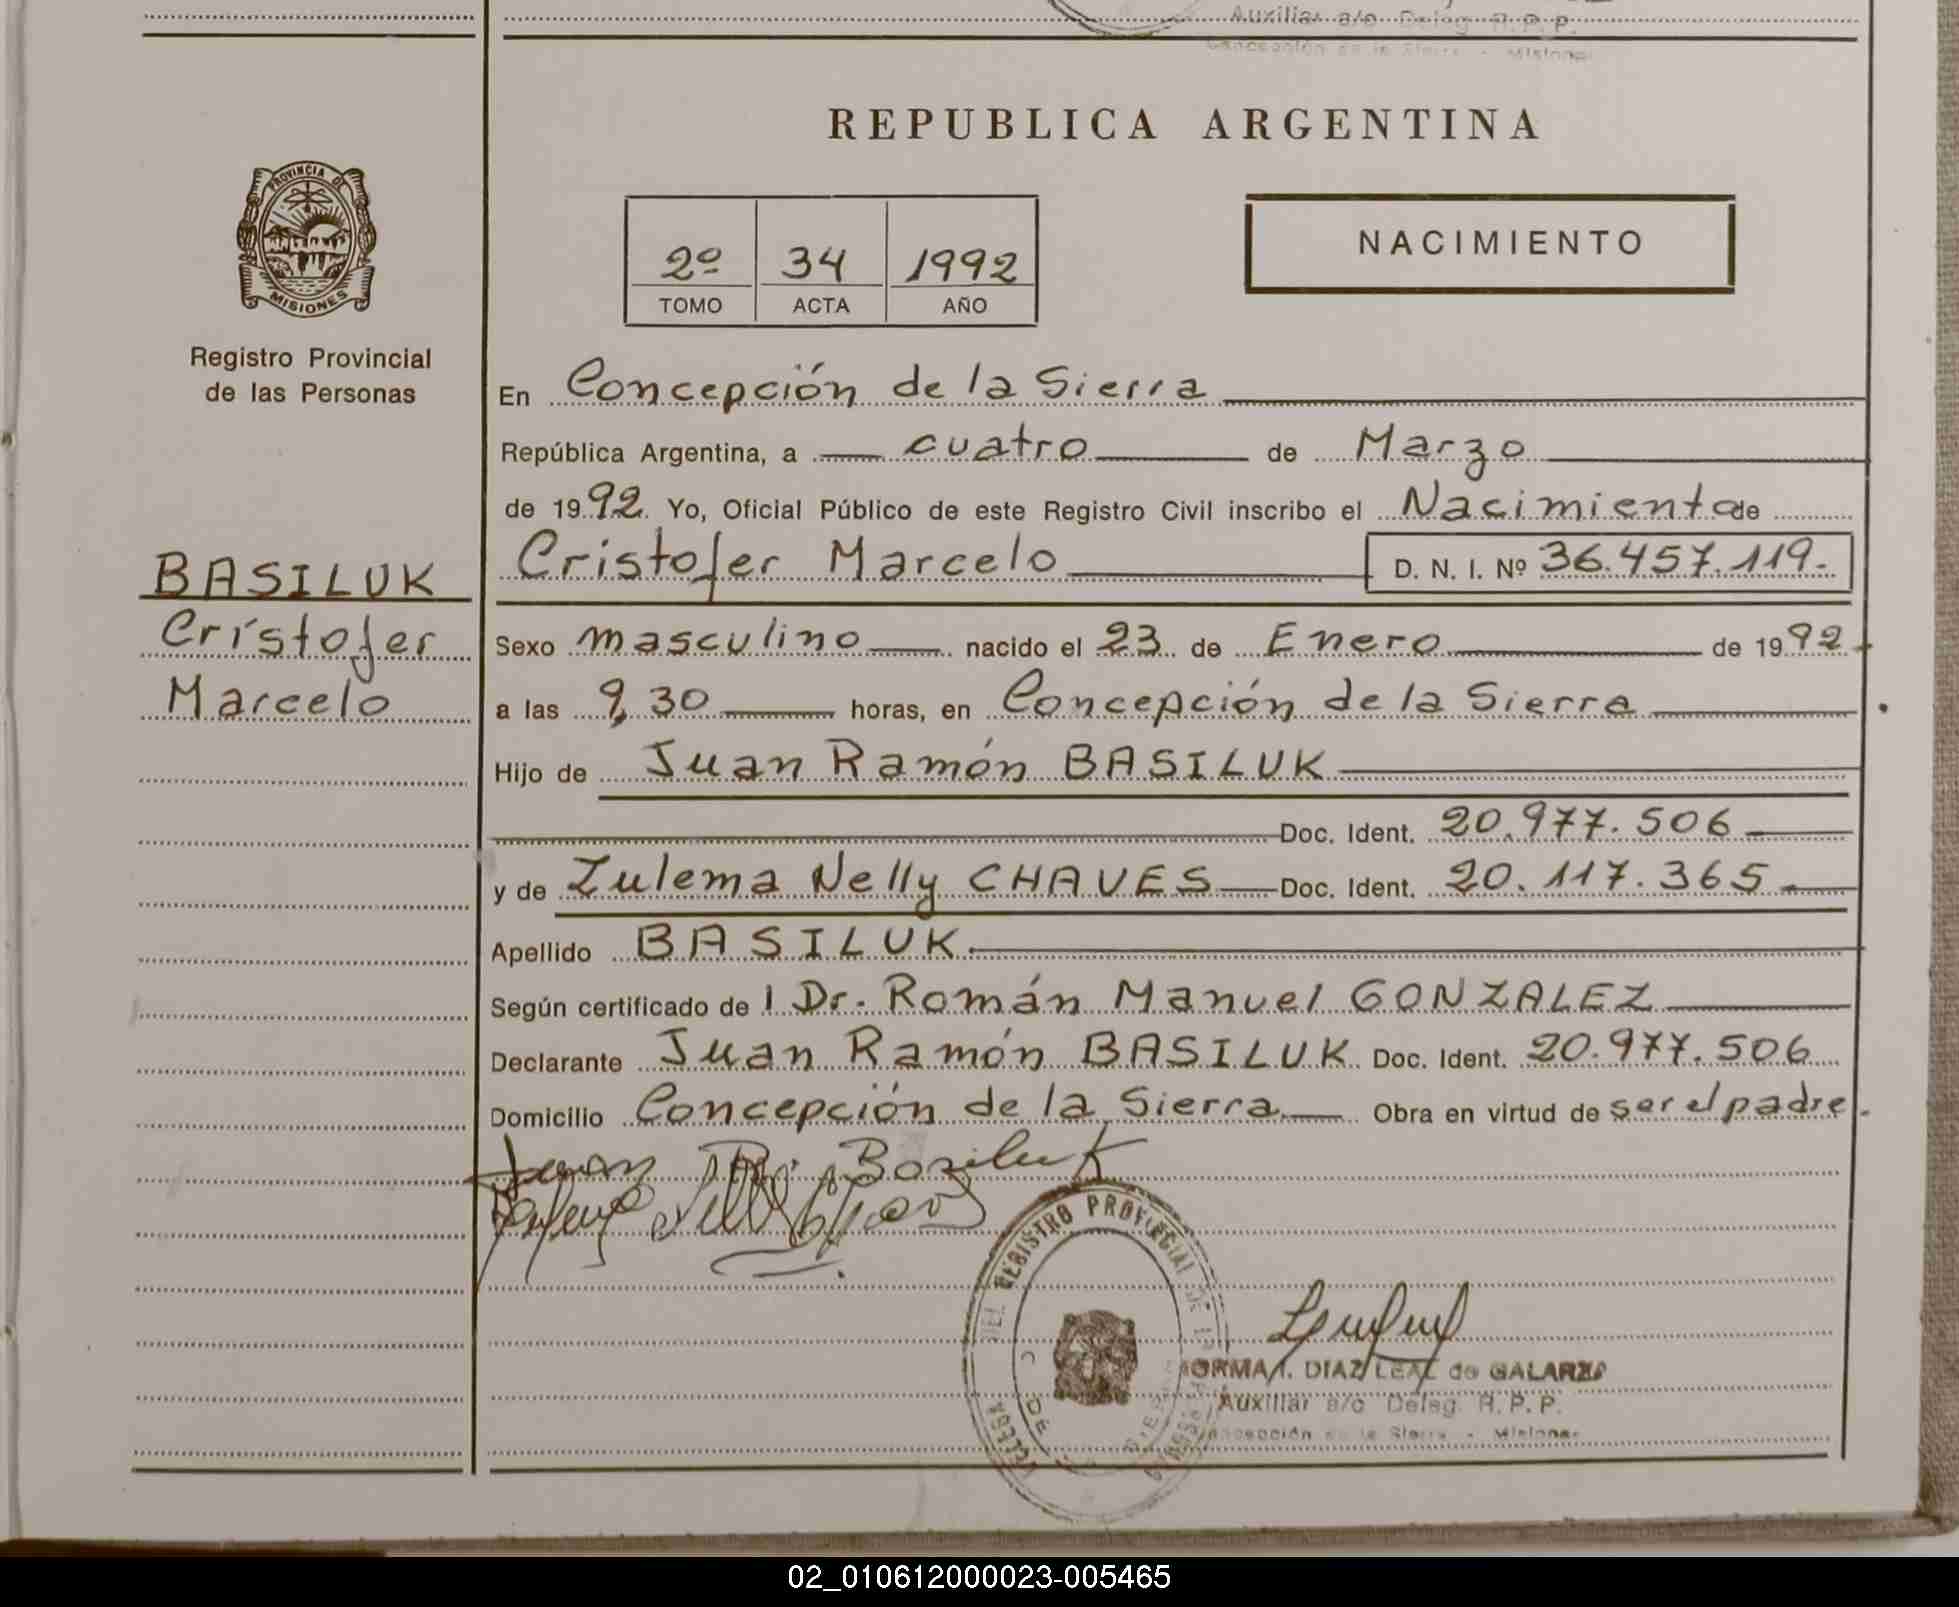 Auxiliar a/c Deleg R.P.P.
Concepción de la Sierra - Misiones
REPUBLICA ARGENTINA
PROVINCIA DE
MISIONES
Registro Provincial
de las Personas
2º 34 1992
TOMO ACTA AÑO
NACIMIENTO
En Concepción de la Sierra
República Argentina, a cuatro de Marzo
de 1992. Yo, Oficial Público de este Registro Civil inscribo el Nacimiento de
BASILUK
Cristofer Marcelo D. N. I. Nº 36.457.119.-
Cristofer
Sexo masculino nacido el 23 de Enero de 1992
Marcelo
a las 9,30 horas, en Concepción de la Sierra
Hijo de Juan Ramón BASILUK
Doc. Ident. 20.977.506
y de Zulema Nelly CHAVES Doc. Ident. 20.117.365.
Apellido BASILUK.
Según certificado de l Dr. Román Manuel GONZALEZ
Declarante Juan Ramón BASILUK Doc. Ident. 20.977.506
Domicilio Concepción de la Sierra Obra en virtud de ser el padre.
Juan R. Basiluk
DEL REGISTRO PROVINCIAL DE
NORMA I. DIAZ LEAL de GALARZA
Auxiliar a/c Deleg. R. P. P.
Concepción de la Sierra - Misiones
02_010612000023-005465